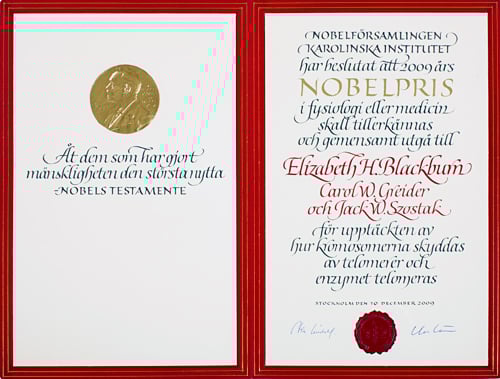 Åt dem som har gjort
mänskligheten den största nytta
NOBELS TESTAMENTE
NOBELFÖRSAMLINGEN
KAROLINSKA INSTITUTET
har beslutat att 2009 års
NOBELPRIS
i fysiologi eller medicin
skall tillerkännas
och gemensamt utgå till
Elizabeth H. Blackburn
Carol W. Greider
och Jack W. Szostak
för upptäckten av
hur kromosomerna skyddas
av telomerer och
enzymet telomeras
STOCKHOLM DEN 10 DECEMBER 2009